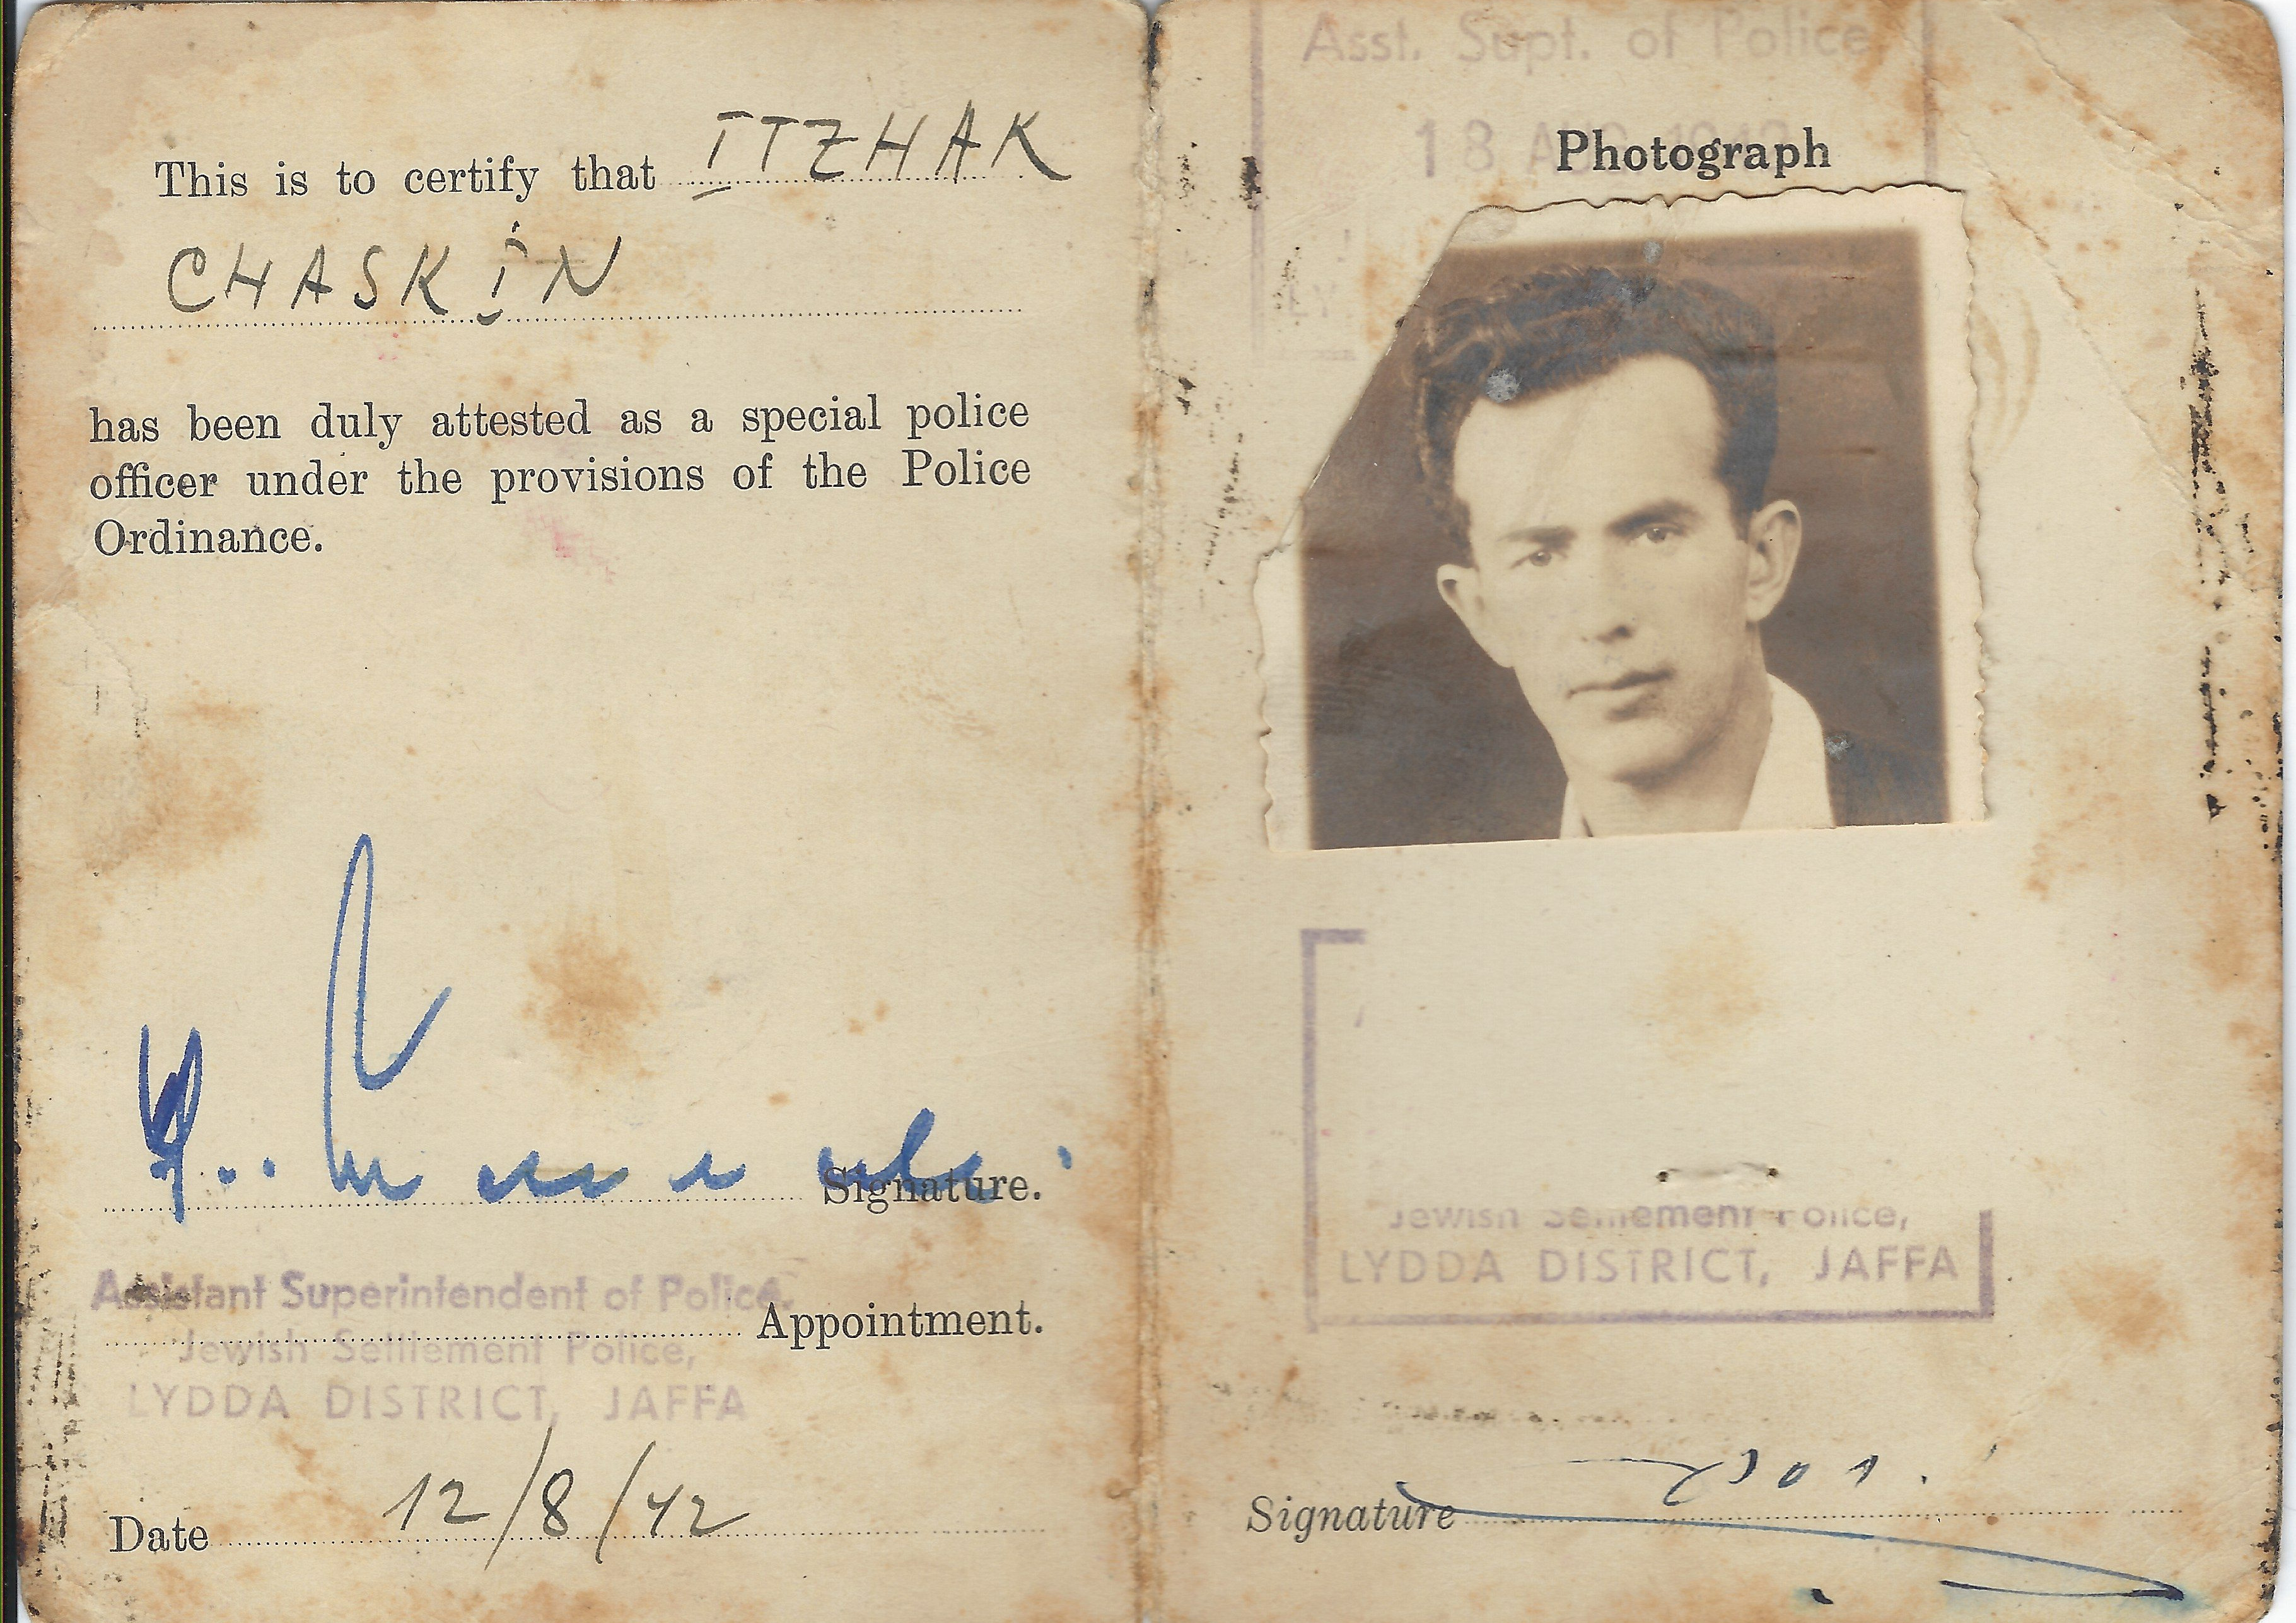 This is to certify that ITZHAK
CHASKIN
has been duly attested as a special police
officer under the provisions of the Police
Ordinance.
Signature.
Assistant Superintendent of Police.
Appointment.
Jewish Settlement Police,
LYDDA DISTRICT, JAFFA
Date 12/8/42
Asst. Supt. of Police
18 AUG 1942
Photograph
LY
Jewish Settlement Police,
LYDDA DISTRICT, JAFFA
Signature